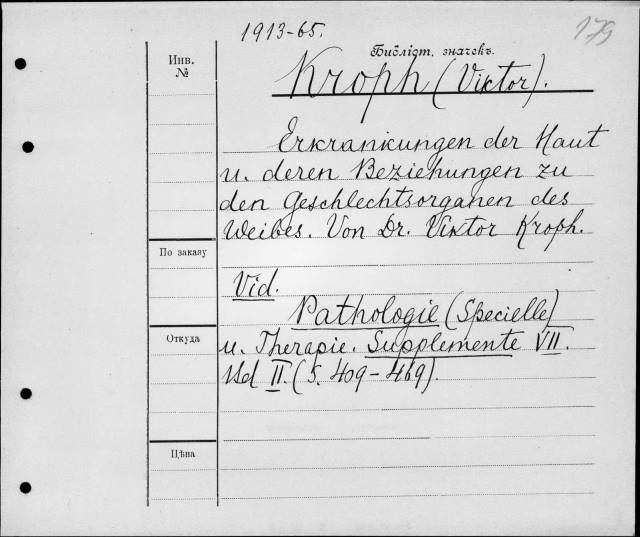 1913-65.
179
Инв.
№
Библіот. значекъ.
Kroph (Viktor).
Erkrankungen der Haut
u. deren Beziehungen zu
den Geschlechtsorganen des
Weibes. Von Dr. Viktor Kroph.
По заказу
Vid.
Pathologie (Specielle)
Откуда
u. Therapie. Supplemente VII.
Bd II. (S. 409-469).
Цѣна